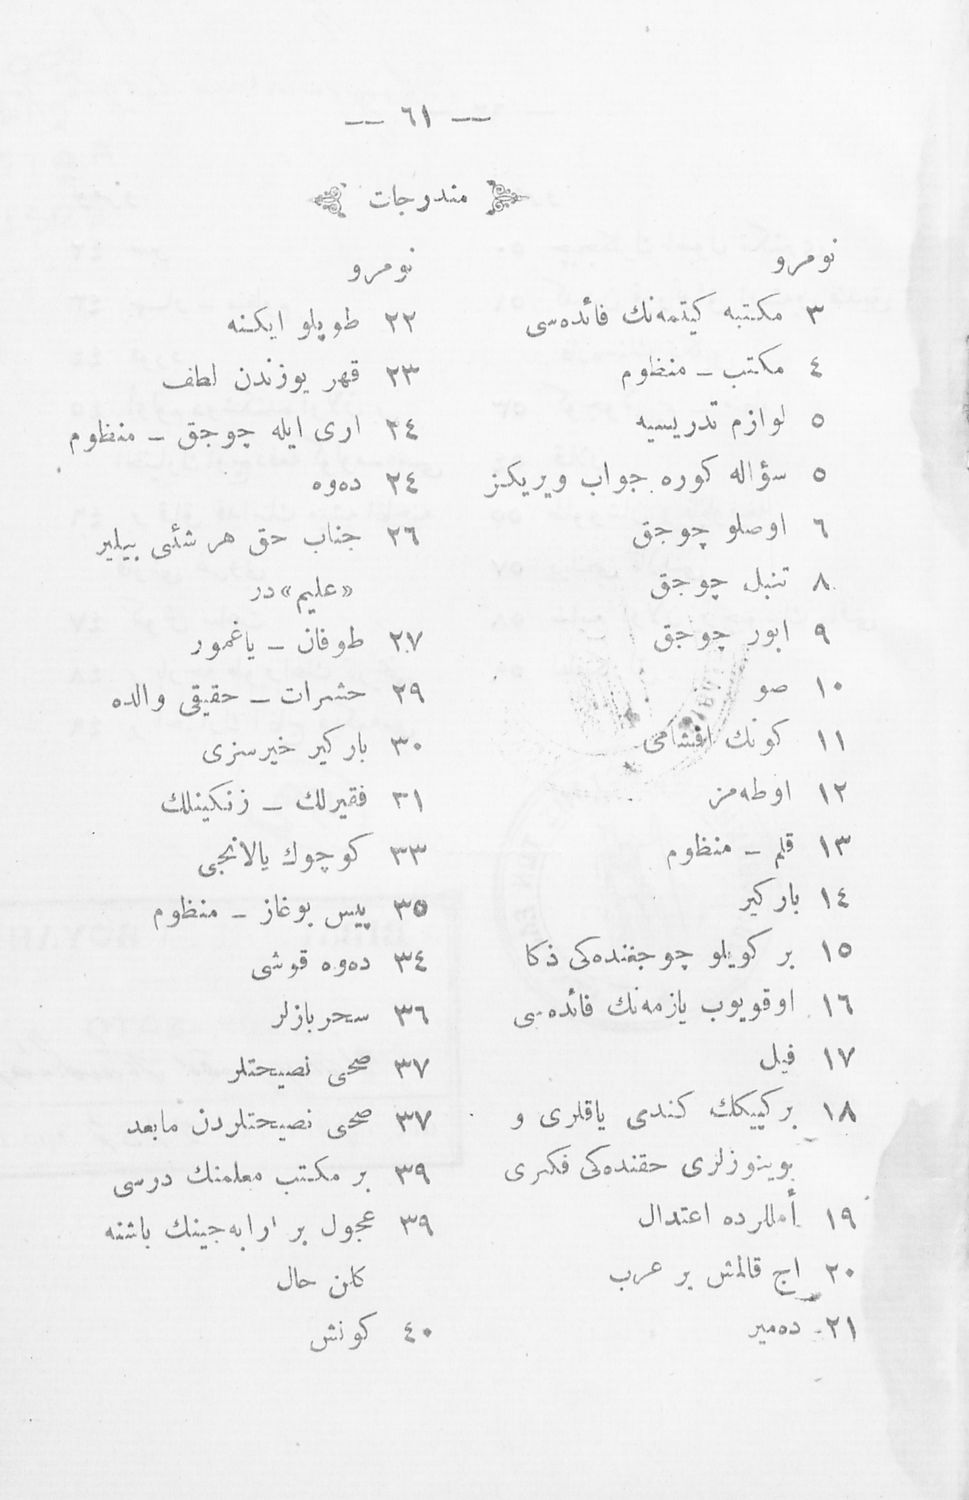 — ٦١ —
مندرجات
نومرو
٣ مكتبه كیتمه‌نك فائده‌سی
٤ مكتب – منظوم
٥ لوازم تدریسیه
٥ سؤاله كوره جواب ویریكز
٦ اوصلو چوجق
٨ تنبل چوجق
٩ ابور چوجق
١٠ صو
١١ كونك اقشامی
١٢ اوطه‌مز
١٣ قلم – منظوم
١٤ باركیر
١٥ بر كویلو چوجغنده‌كی ذكا
١٦ اوقویوب یازمه‌نك فائده‌سی
١٧ فیل
١٨ بر كییكك كندی یاقلری و
بوینوزلری حقنده‌كی فكری
١٩ أمللرده اعتدال
٢٠ اج قالمش بر عرب
٢١ ده‌میر
نومرو
٢٢ طوپلو ایكنه
٢٣ قهر یوزندن لطف
٢٤ اری ایله چوجق – منظوم
٢٤ ده‌وه
٢٦ جناب حق هر شئی بیلیر
«علیم» در
٢٧ طوفان – یاغمور
٢٩ حشرات – حقیقی والده
٣٠ باركیر خیرسزی
٣١ فقیرلك – زنكینلك
٣٣ كوچوك یالانجی
٣٥ پیس بوغاز – منظوم
٣٤ ده‌وه قوشی
٣٦ سحربازلر
٣٧ صحی نصیحتلر
٣٧ صحی نصیحتلردن مابعد
٣٩ بر مكتب معلمنك درسی
٣٩ عجول بر ارابه‌جینك باشنه
كلن حال
٤٠ كونش